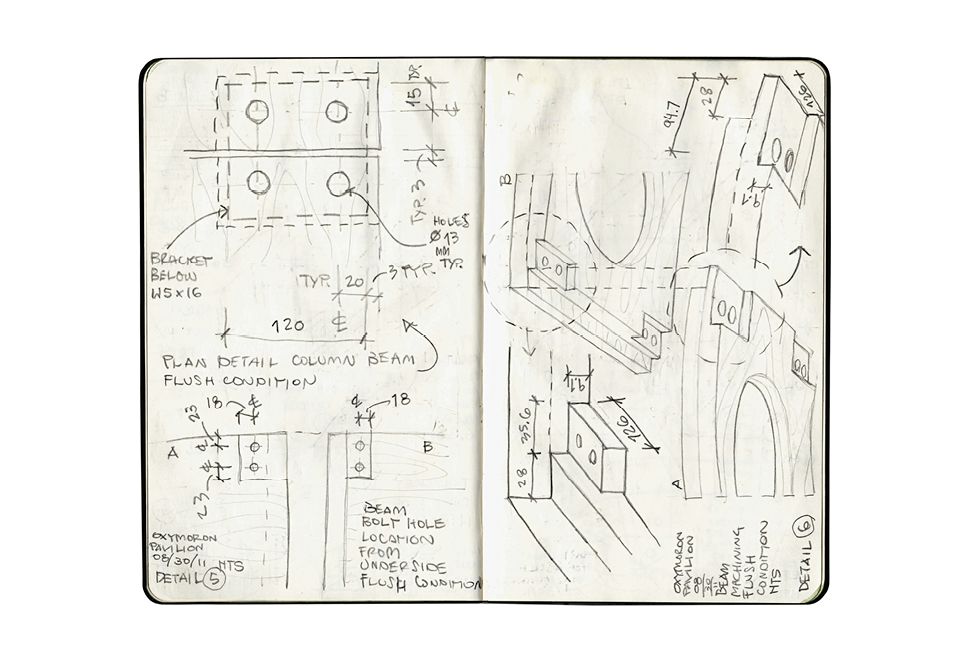 15 TYP.
℄
TYP. 3
HOLES
Ø 13
MM
TYP.
BRACKET
BELOW
W5x16
TYP. 20
3 TYP.
℄
120
PLAN DETAIL COLUMN BEAM
FLUSH CONDITION
18
℄
23
℄
℄
23
A
℄
18
B
BEAM
BOLT HOLE
LOCATION
FROM
UNDERSIDE
FLUSH CONDITION
OXYMORON
PAVILION
08/30/11 NTS
DETAIL 5
94.7
28
126
9.1
B
9.1
35.6
126
28
A
OXYMORON
PAVILION
08
30
11
BEAM
MACHINING
FLUSH
CONDITION
NTS
DETAIL 6